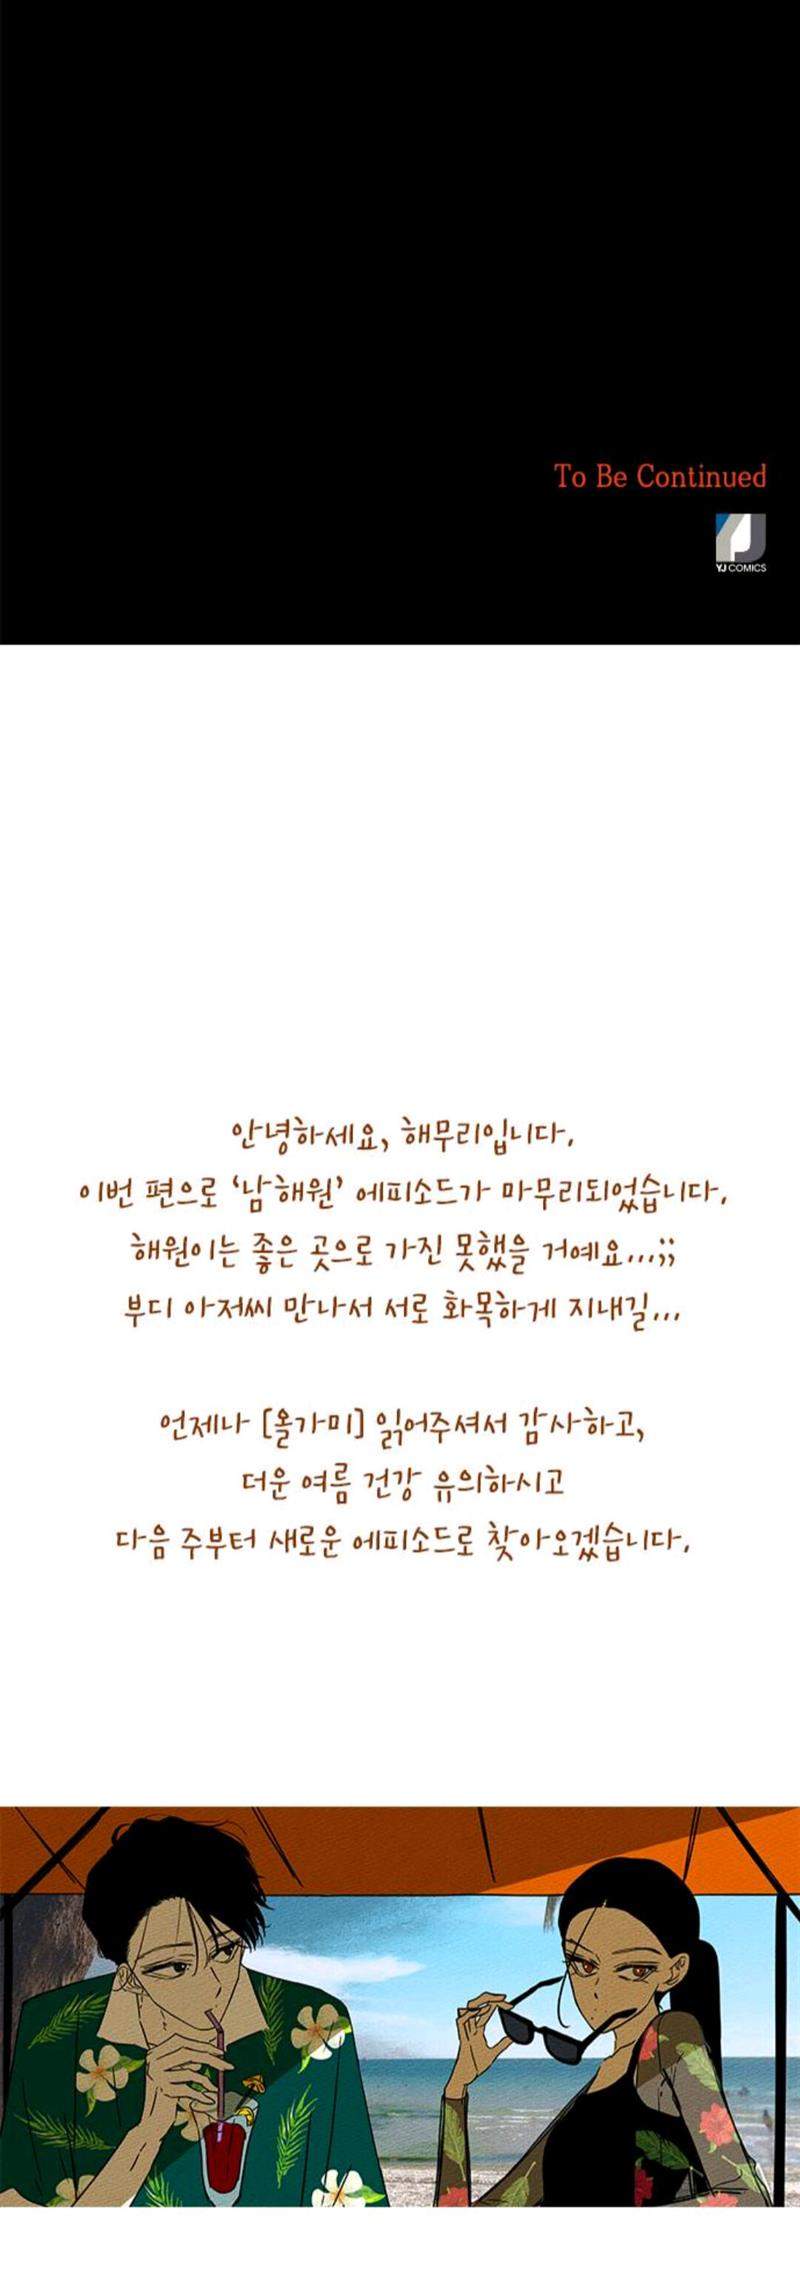 To Be Continued
YJ COMICS
안녕하세요, 해무리입니다.
이번 편으로 ‘남해원’ 에피소드가 마무리되었습니다.
해원이는 좋은 곳으로 가진 못했을 거예요...;;
부디 아저씨 만나서 서로 화목하게 지내길...
언제나 [올가미] 읽어주셔서 감사하고,
더운 여름 건강 유의하시고
다음 주부터 새로운 에피소드로 찾아오겠습니다.